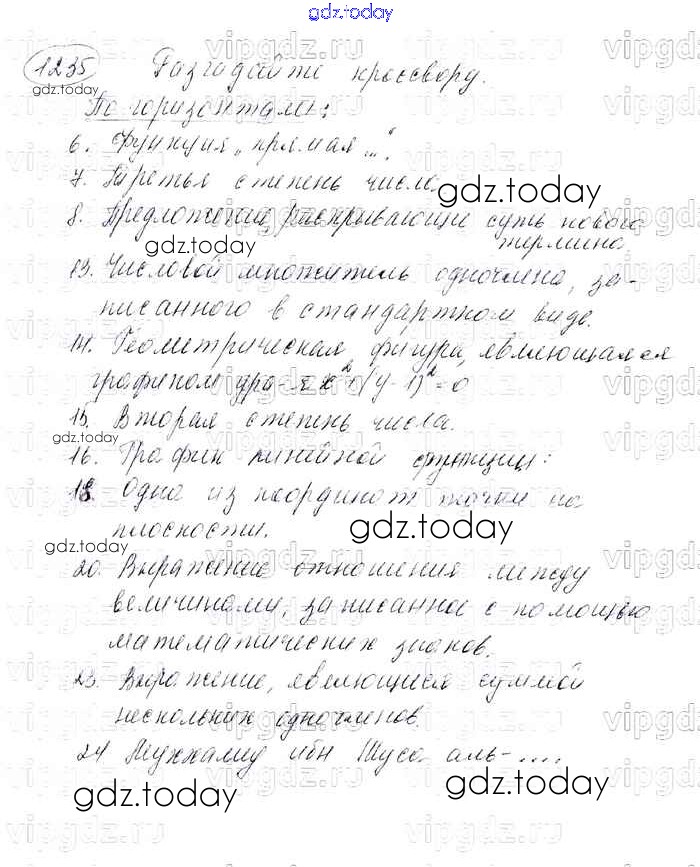 gdz.today
1235 Разгадайте кроссворд.
gdz.today
По горизонтали:
6. Функция „прямая ...“.
7. Третья степень числа.
gdz.today
8. Предложение, раскрывающие суть нового
gdz.today термина
13. Числовой множитель одночлена, за-
писанного в стандартном виде.
14. Геометрическая фигура, являющаяся
графиком ур-я x² + (y-1)² = 0
15. Вторая степень числа.
gdz.today
16. График линейной функции:
18. Одна из координат точки на
плоскости. gdz.today
gdz.today
20. Выражение отношения между
величинами, записанное с помощью
математических знаков.
23. Выражение, являющиеся суммой
нескольких одночленов.
24 Мухжамид ибн Муса аль-....
gdz.today gdz.today
vipgdz.ru